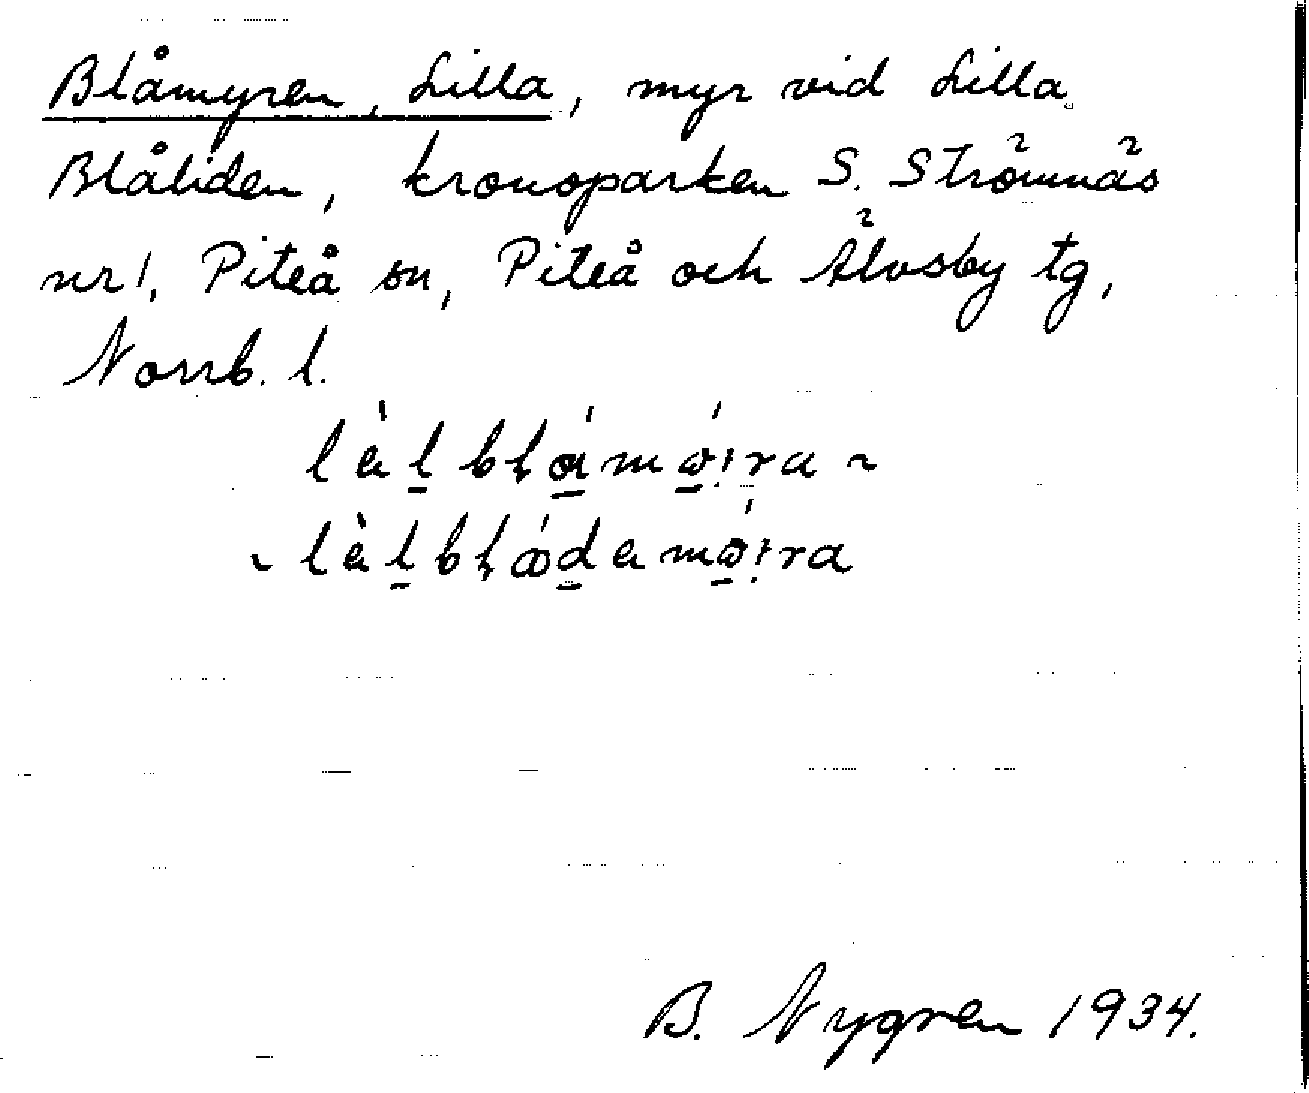 Blåmyren, Lilla, myr vid Lilla
Blåliden, kronoparken S. Strömnäs
nr 1, Piteå sn, Piteå och Älvsby tg,
Norrb. l.
B. Nygren 1934.